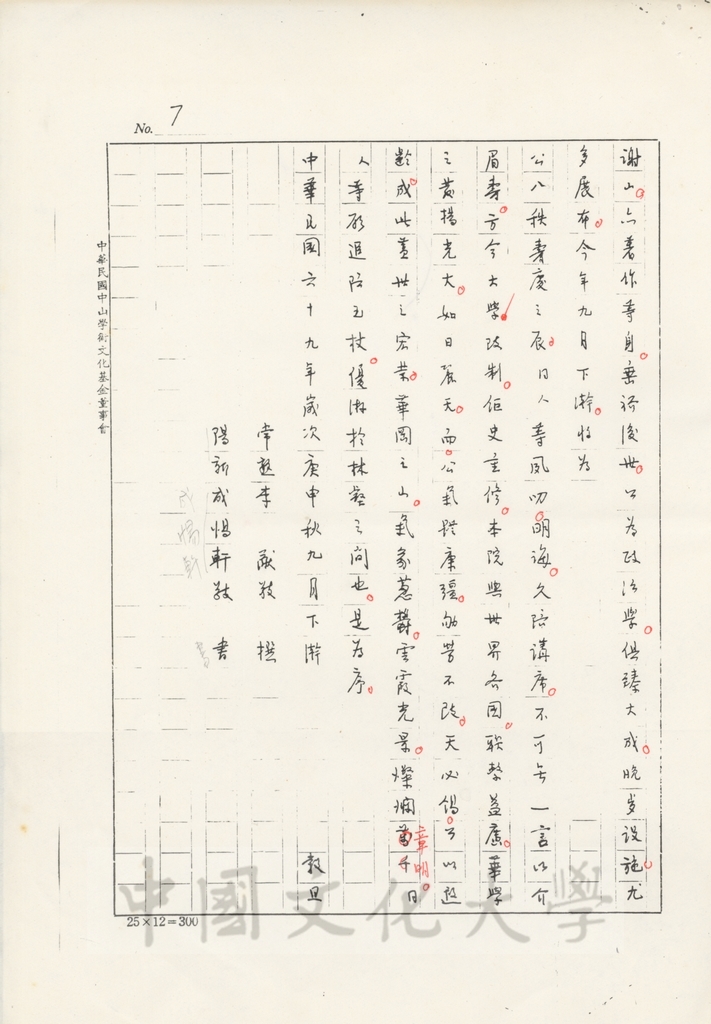 No. 7
謝山。亦著作等身。垂裕後世。公為政治學。俱臻大成。晚歲設施。尤
多展布。今年九月下澣。恰為
公八秩壽慶之辰。同人等夙叨明誨。久陪講席。不可無一言以介
眉壽。方今大學改制。鉅史重修。本院與世界各國。聯繫益廣。華學
之發揚光大。如日麗天。而公氣貌康彊。劬勞不改。天必錫公以遐
齡。成此蓋世之宏業。華岡之山。氣象蔥鬱。雲霞光景。燦爛萬千。日
章明。
人等願追陪玉杖。優游於林壑之間也。是為序。
中華民國六十九年歲次庚申秋九月下澣 穀旦
常熟李 猷敬 撰
陽新成惕軒敬 書
成惕軒 書
中華民國中山學術文化基金董事會
25×12=300
中國文化大學